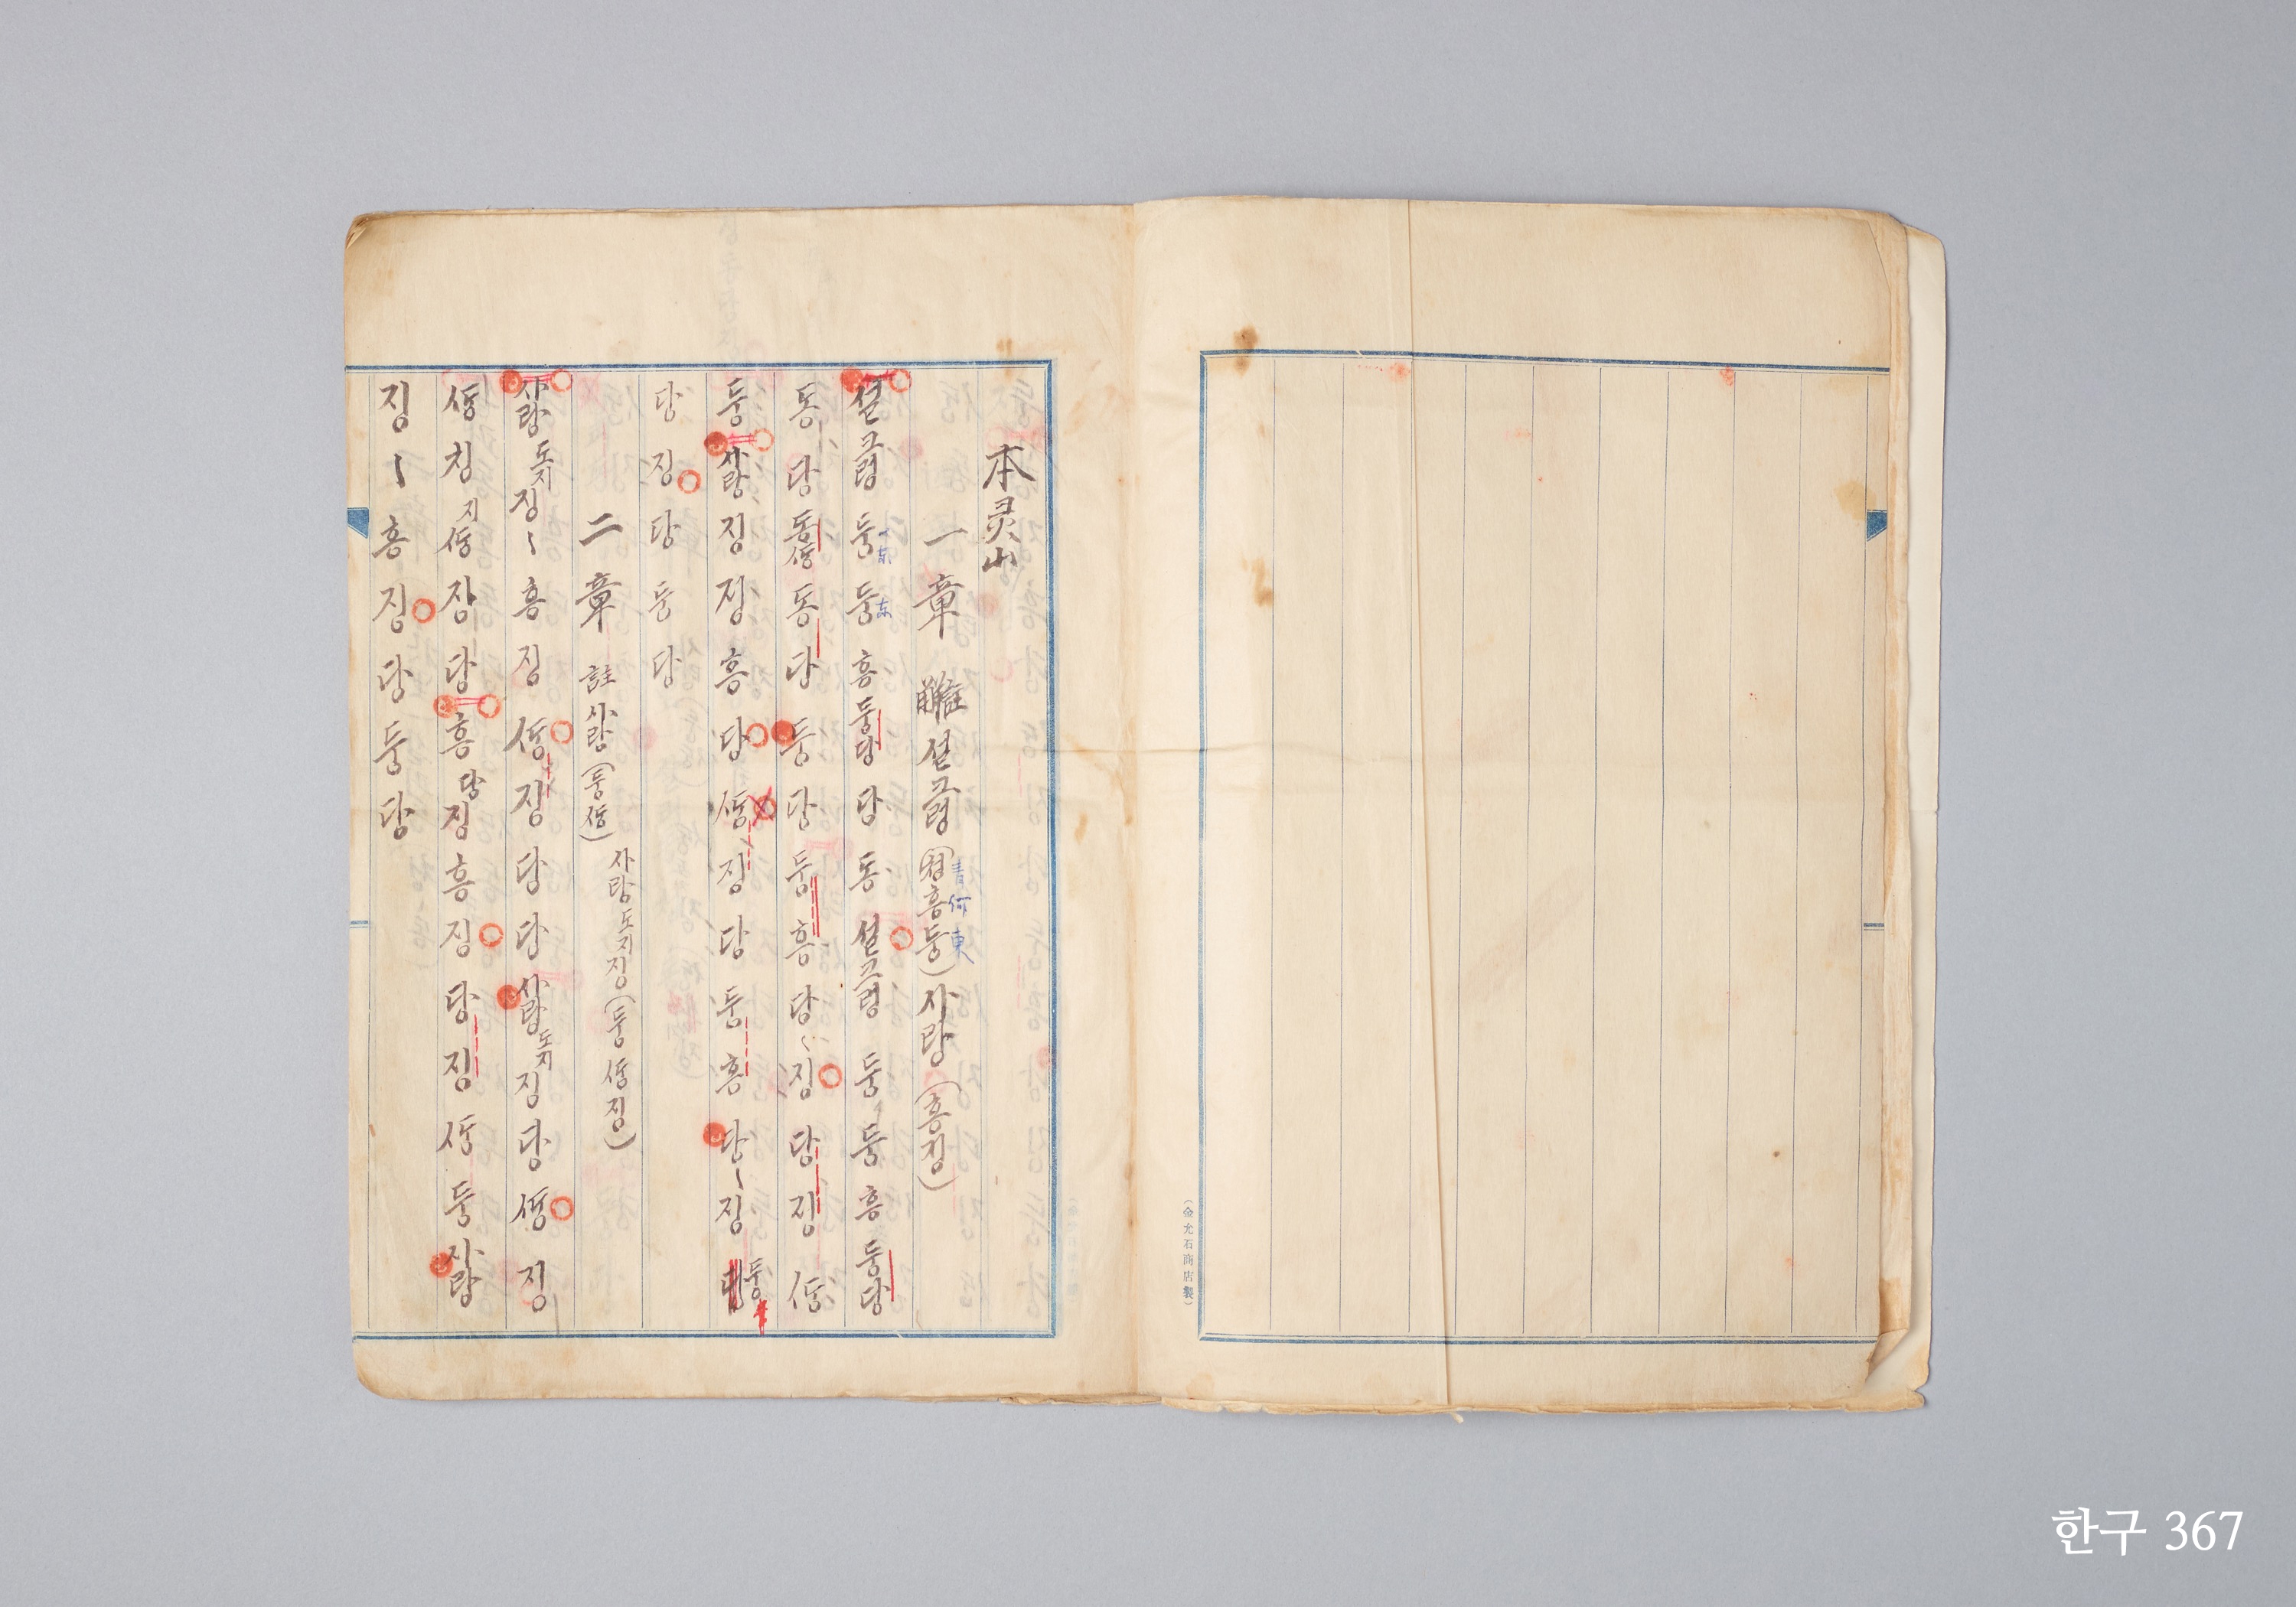 本灵山
一章 註 설그렁 (청흥둥) 사랑 (흥징)
青何東
설그렁 둥 둥 흥 둥당 당 동 설그렁 둥 둥 흥 둥당
东
东
동 당 동 동 당 둥 당 둥 흥 당 징 당 징
둥 사랑 징 징 흥 당 징 당 둥 흥 당 징 둥
당 징 당 둥 당
二章 註 사랑 (둥
사랑 도지징 (둥 징)
사랑 도지징 흥 징 징 당 당 사랑 도지징 당 징
칭 지 장 당 흥 당 징 흥 징 당 징 둥 사랑
징 흥 징 당 둥 당
(金允石商店製)
한구 367